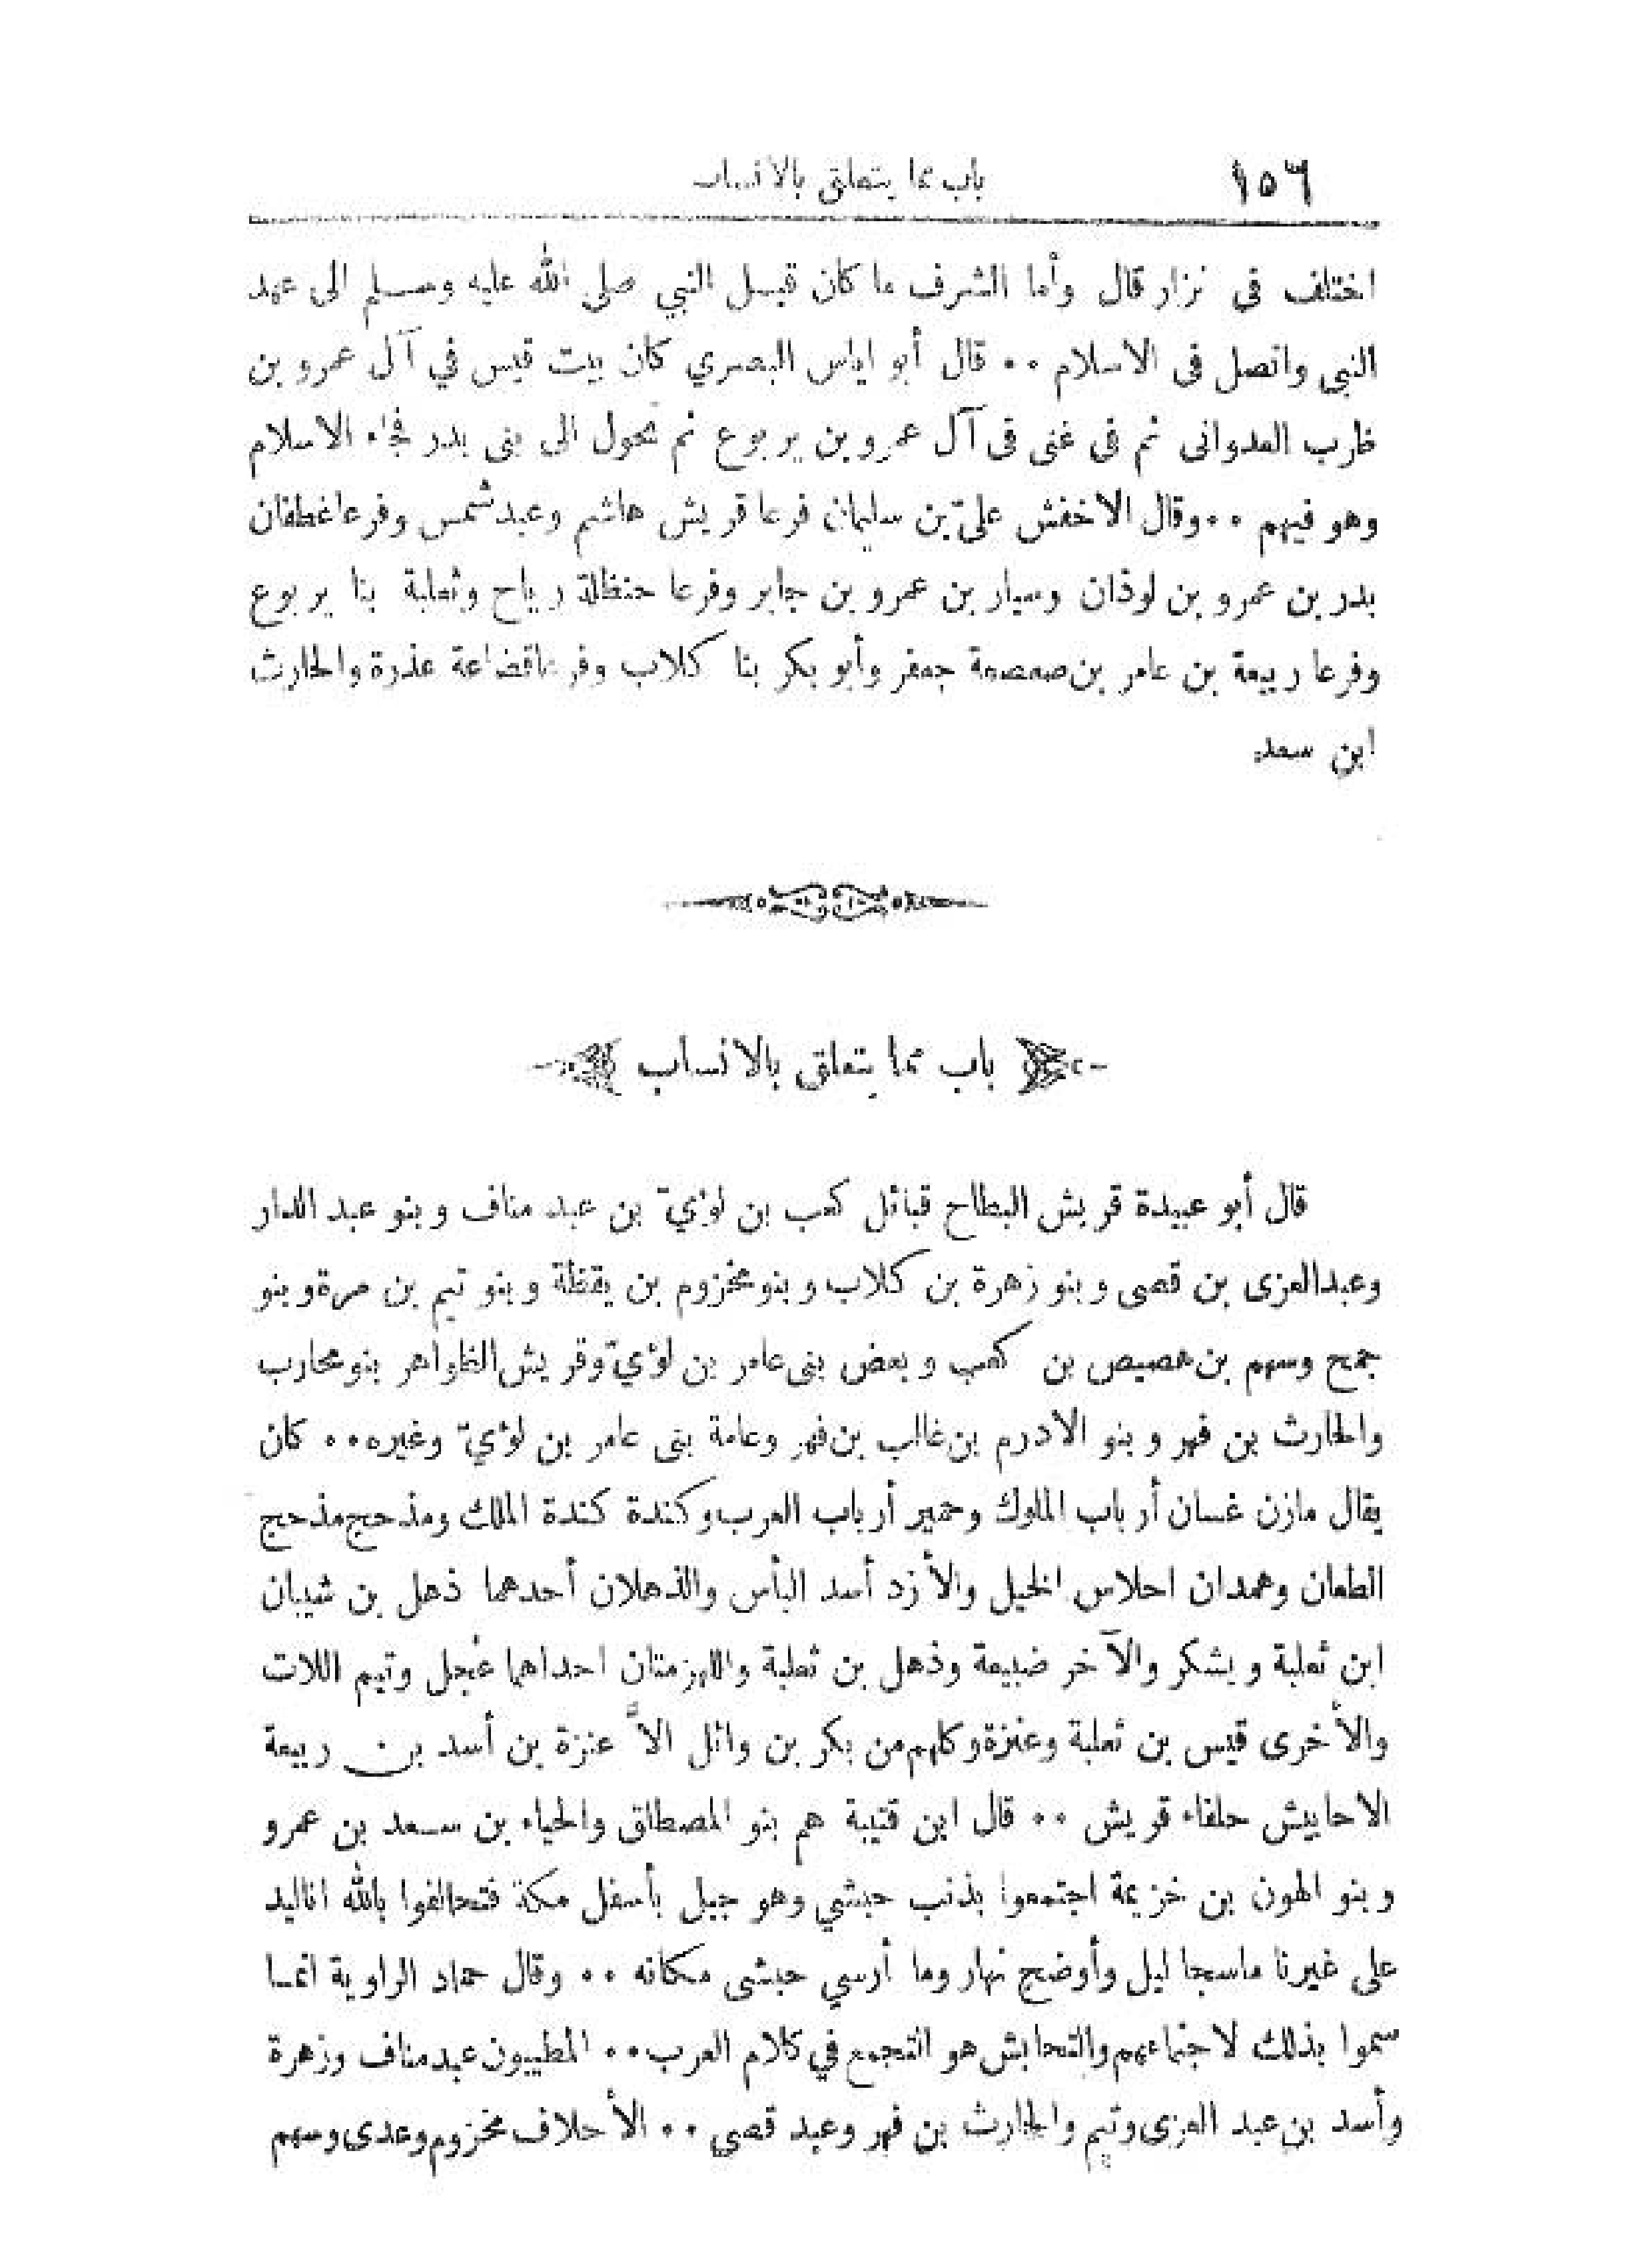 ١٥٦ باب مما يتعلق بالانساب
اختلف فى نزار قال وأما الشرف ما كان قبل النبي صلى الله عليه وسلم الى عهد
النبى واتصل فى الاسلام ٠٠ قال أبو اياس البصري كان بيت قيس في آل عمرو بن
ظارب العدوانى ثم فى غنى فى آل عمرو بن يربوع ثم تحول الى بنى بدر فجاء الاسلام
وهو فيهم ٠٠ وقال الاخفش علىّ بن سليمان فرعا قريش هاشم وعبد شمس وفرعا غطفان
بدر بن عمرو بن لوذان وسيار بن عمرو بن جابر وفرعا حنظلة رياح وثعلبة بنا يربوع
وفرعا ربيعة بن عامر بن صعصعة جعفر وأبو بكر بنا كلاب وفرعا قضاعة عذرة والحارث
ابن سعد
باب مما يتعلق بالانساب
قال أبو عبيدة قريش البطاح قبائل كعب بن لؤيّ بن عبد مناف وبنو عبد الدار
وعبد العزى بن قصى وبنو زهرة بن كلاب وبنو مخزوم بن يقظة وبنو تيم بن مرة وبنو
جمح وسهم بن هصيص بن كعب وبعض بنى عامر بن لؤيّ وقريش الظواهر بنو محارب
والحارث بن فهر وبنو الادرم بن غالب بن فهر وعامة بنى عامر بن لؤيّ وغيره ٠٠ كان
يقال مازن غسان أرباب الملوك وحمير أرباب العرب وكندة كندة الملك ومذحج مذحج
الطعان وهمدان احلاس الخيل والأزد أسد البأس والذهلان أحدهما ذهل بن شيبان
ابن ثعلبة ويشكر والآخر ضبيعة وذهل بن ثعلبة واللهزمتان احداهما عجل وتيم اللات
والأخرى قيس بن ثعلبة وعنزة وكلهم من بكر بن وائل الاَّ عنزة بن أسد بن ربيعة
الاحابيش حلفاء قريش ٠٠ قال ابن قتيبة هم بنو المصطلق والحياء بن سعد بن عمرو
وبنو الهون بن خزيمة اجتمعوا بذنب حبشي وهو جبل بأسفل مكة فتحالفوا بالله اناليد
على غيرنا ماسجا ليل وأوضح نهار وما أرسي حبشى مكانه ٠٠ وقال حماد الراوية انما
سموا بذلك لاجتماعهم والتحابش هو التجمع في كلام العرب ٠٠ المطيبون عبد مناف وزهرة
وأسد بن عبد العزى وتيم والحارث بن فهر وعبد قصي ٠٠ الأحلاف مخزوم وعدى وسهم